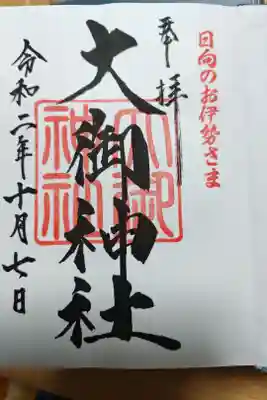 日向のお伊勢さま
奉拝
大御神社
大御神社
令和二年十月七日